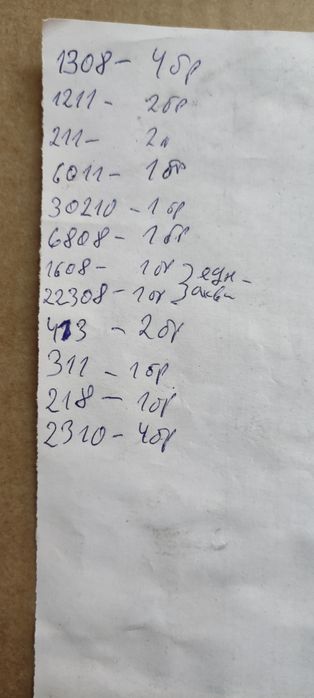 1308 - 4бр
1211 - 2бр
211 - 2
6011 - 1бр
30210 - 1бр
6808 - 1бр
1608 - 1бр
22308 - 1бр
413 - 2бр
311 - 1бр
218 - 1бр
2310 - 4бр